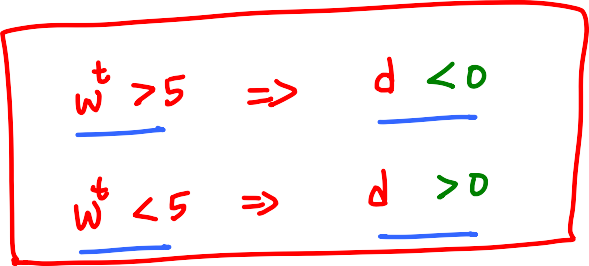 w^t > 5 ⇒ d < 0
w^t < 5 ⇒ d > 0